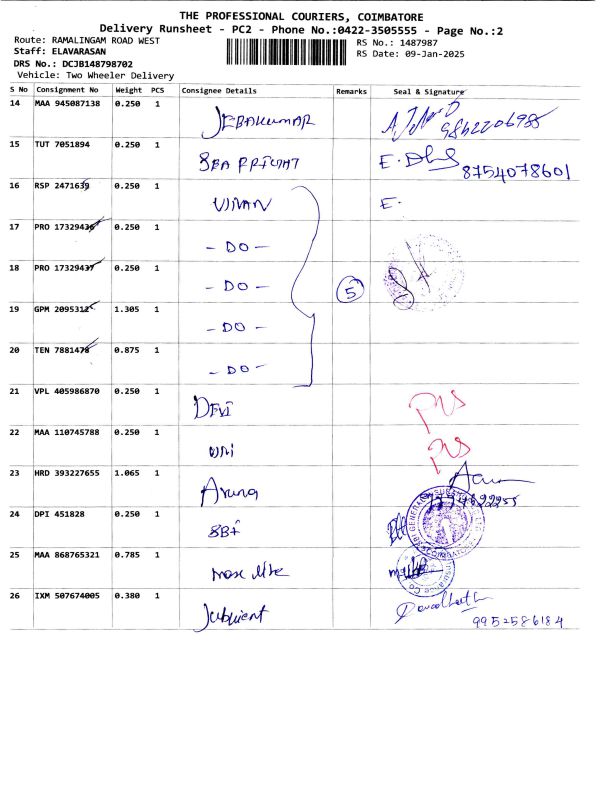 THE PROFESSIONAL COURIERS, COIMBATORE
Delivery Runsheet - PC2 - Phone No.:0422-3505555 - Page No.:2
Route: RAMALINGAM ROAD WEST
RS No.: 1487987
Staff: ELAVARASAN
RS Date: 09-Jan-2025
DRS No.: DCJB148798702
Vehicle: Two Wheeler Delivery
S No Consignment No Weight PCS Consignee Details Remarks Seal & Signature
14 MAA 945087138 0.250 1 JEBAKUMAR
9842206985
15 TUT 7051894 0.250 1 E.
8754078601
16 RSP 2471639 0.250 1 E.
17 PRO 17329436 0.250 1 - DO -
18 PRO 17329437 0.250 1 - DO - 5
19 GPM 2095312 1.305 1 - DO -
20 TEN 7881478 0.875 1 - DO -
21 VPL 405986870 0.250 1 DEVI
22 MAA 110745788 0.250 1
23 HRD 393227655 1.065 1 Aruna
24 DPI 451828 0.250 1 SBI
25 MAA 868765321 0.785 1
26 IXM 507674005 0.380 1 Jubilient
9952586184